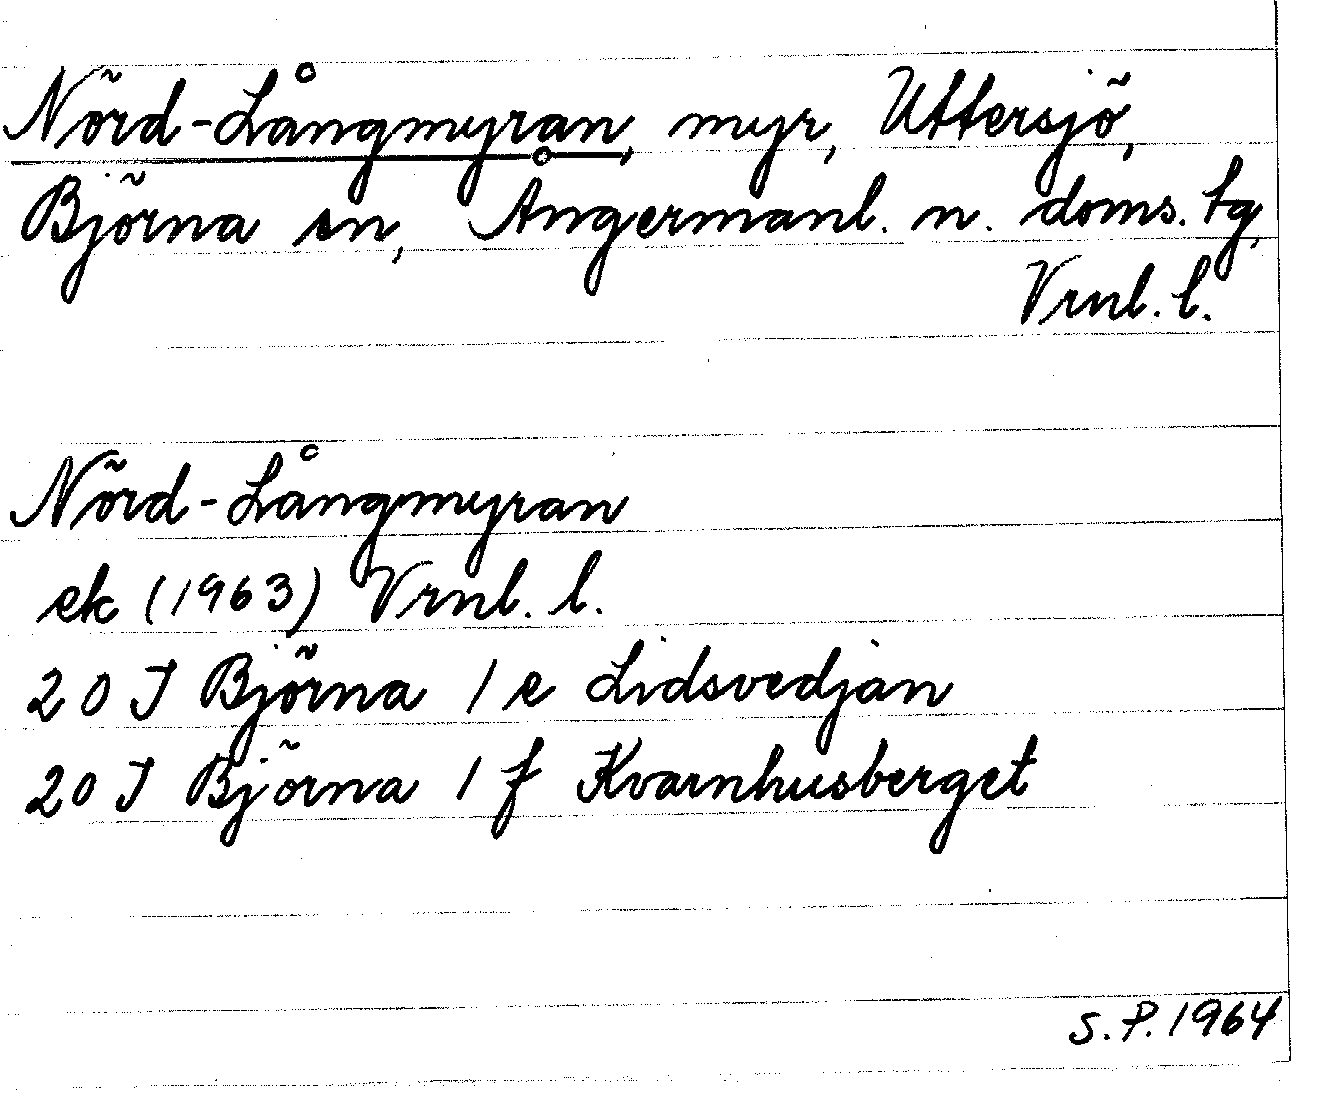 Nörd-Långmyran, myr, Uttersjö,
Björna sn, Ångermanl. n. doms. tg,
Vrnl. l.
Nörd-Långmyran
ek (1963) Vrnl. l.
20 J Björna 1 e Lidsvedjan
20 J Björna 1 f Kvarnhusberget
S.P. 1964